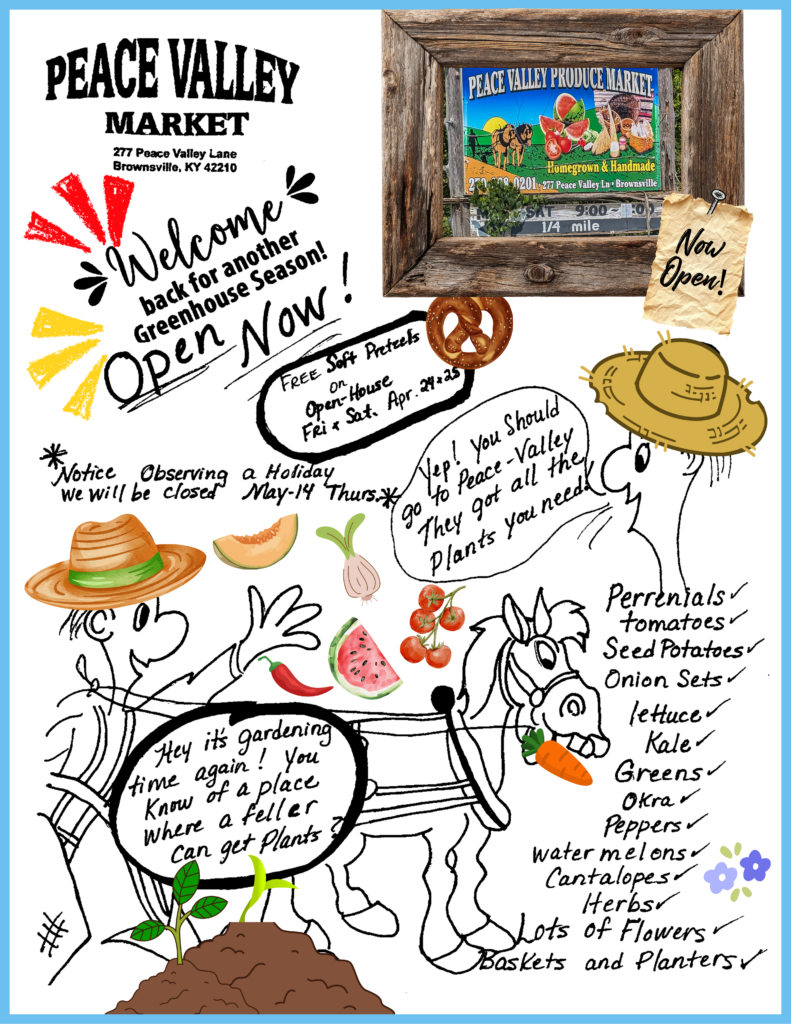 PEACE VALLEY
MARKET
277 Peace Valley Lane
Brownsville, KY 42210
PEACE VALLEY PRODUCE MARKET
Homegrown & Handmade
0201 · 277 Peace Valley Ln · Brownsville
SAT 9:00
1/4 mile
Now
Open!
Welcome
back for another
Greenhouse Season!
Open Now!
FREE Soft Pretzels
on
Open-House
Fri & Sat. Apr. 24 & 25
*Notice Observing a Holiday
We will be closed May-14 Thurs.*
Yep! You Should
go to Peace-Valley
They got all the
Plants you need!
Hey it's gardening
time again! You
Know of a place
where a feller
can get Plants?
Perrenials ✓
tomatoes ✓
Seed Potatoes ✓
Onion Sets ✓
lettuce ✓
Kale ✓
Greens ✓
Okra ✓
Peppers ✓
watermelons ✓
Cantalopes ✓
Herbs ✓
Lots of Flowers ✓
Baskets and Planters ✓